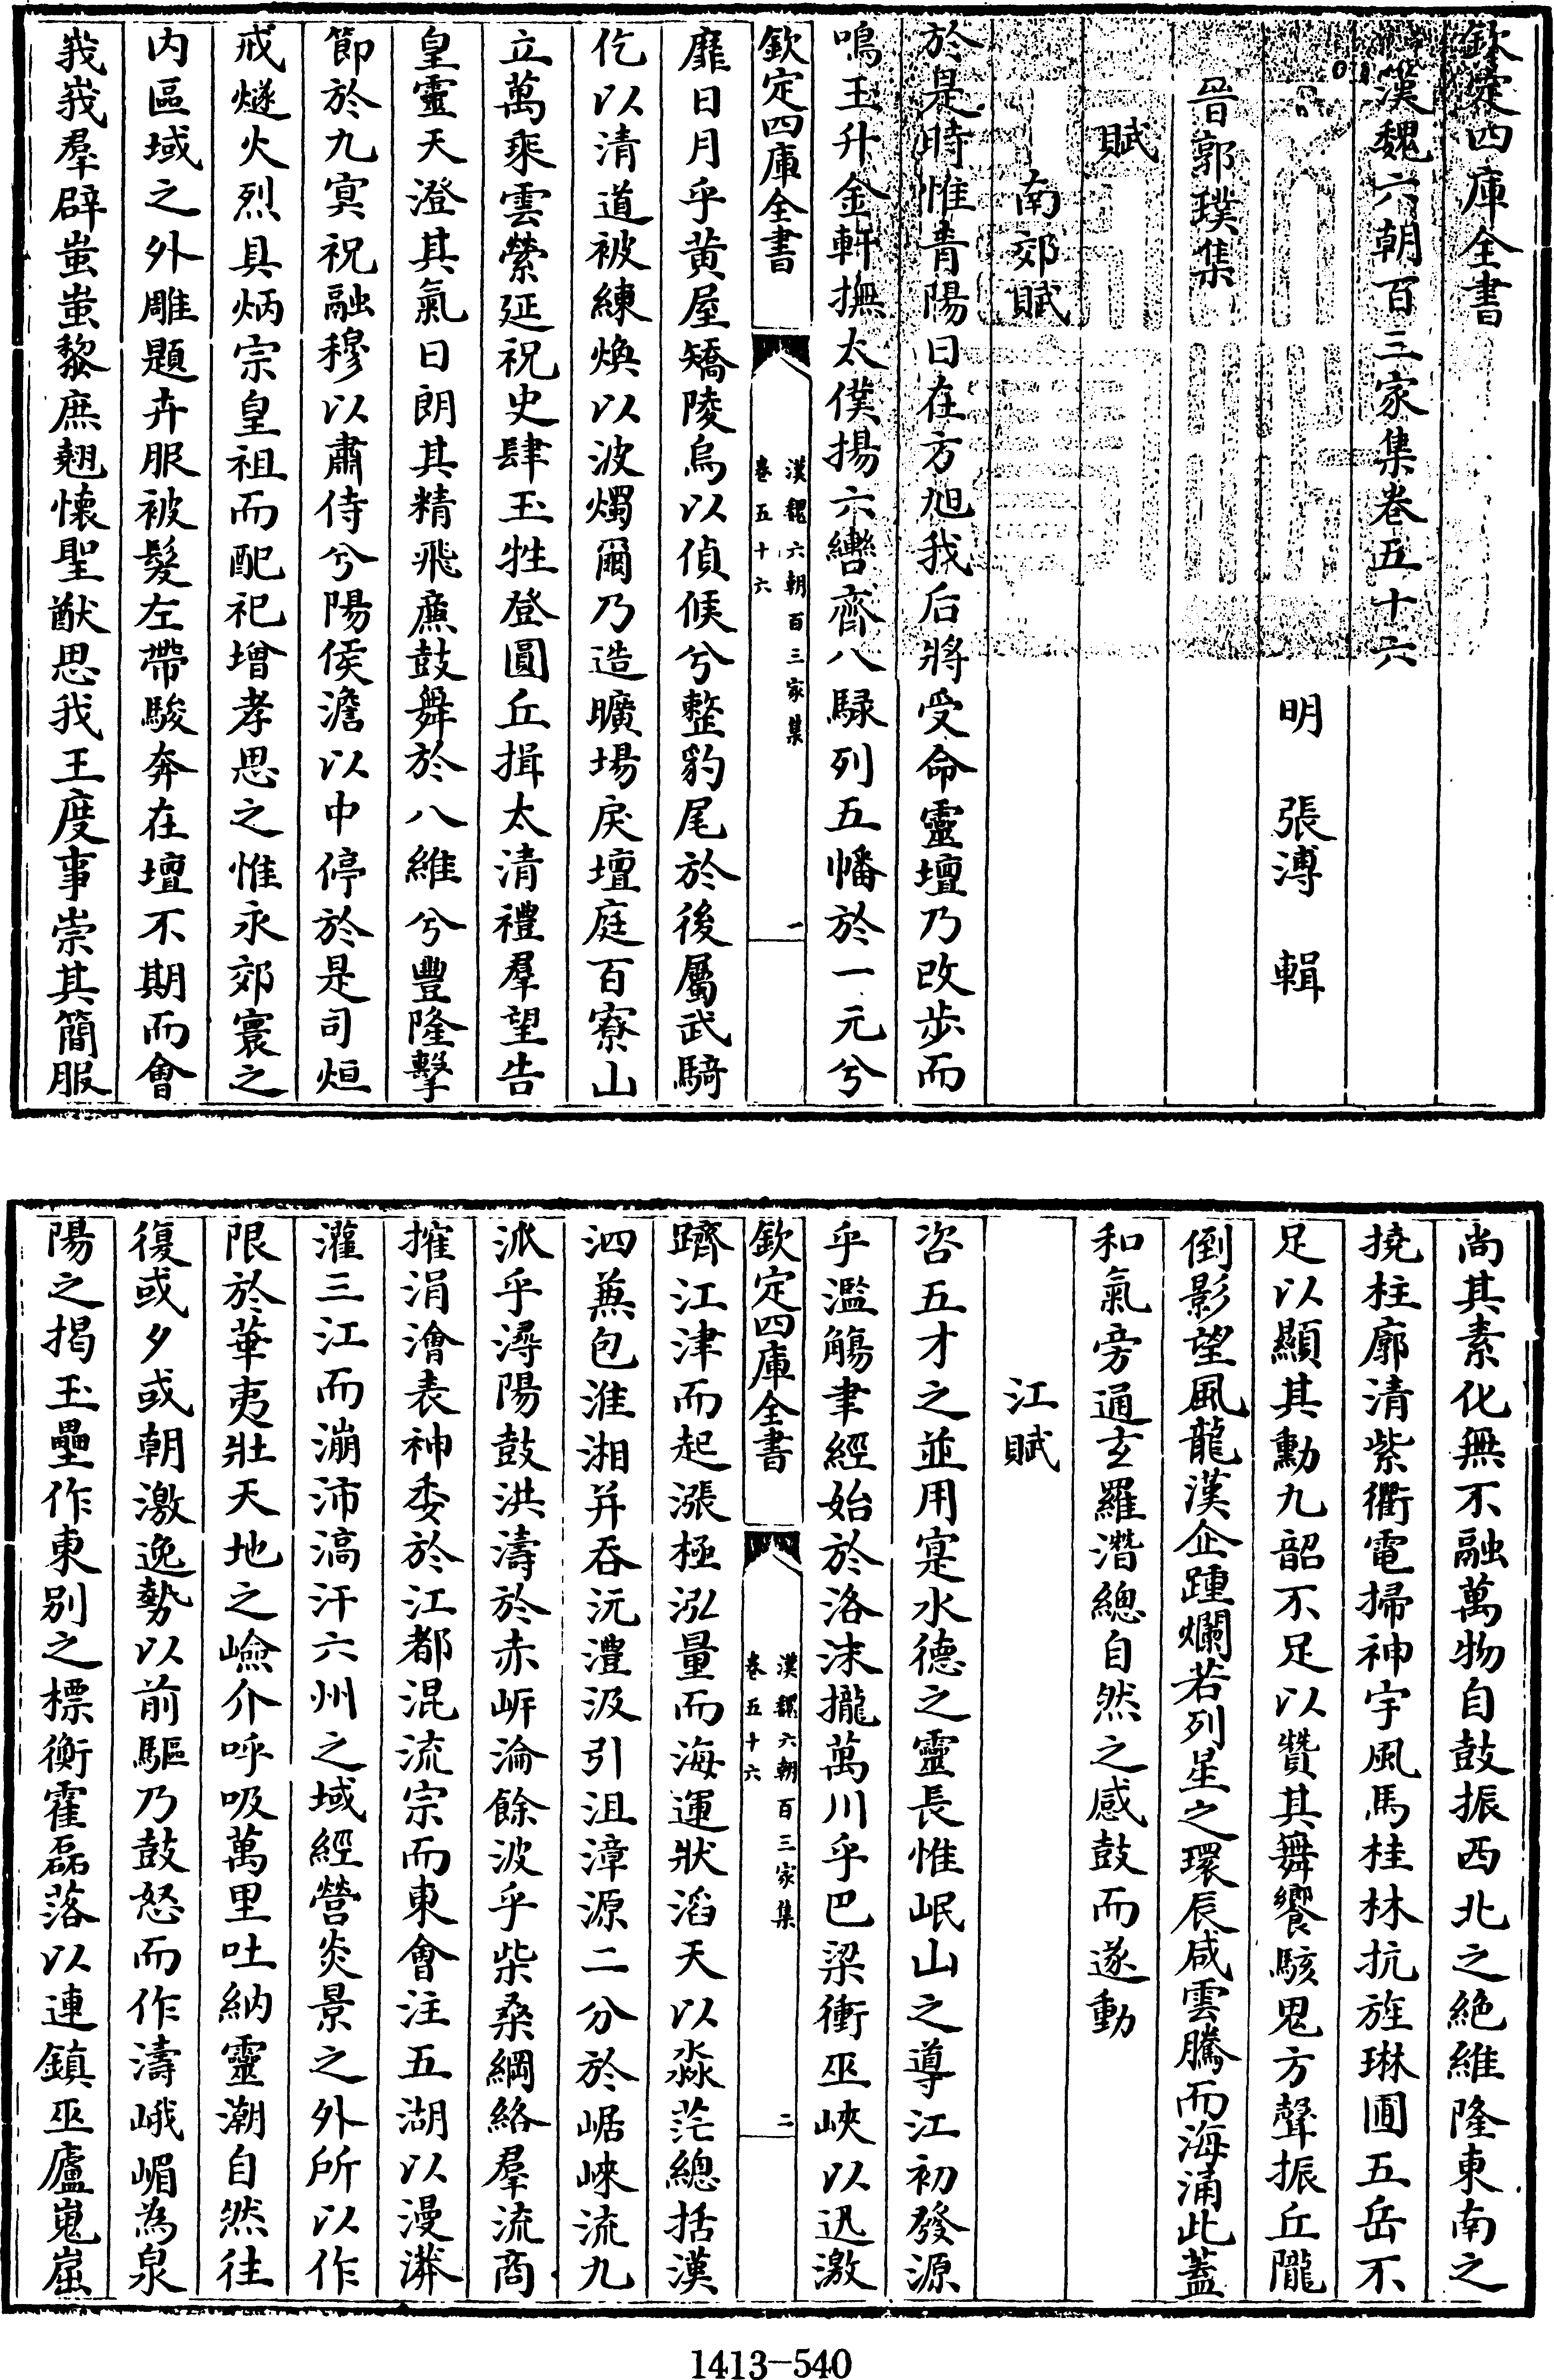 欽定四庫全書
漢魏六朝百三家集卷五十六
明　張溥　輯
晉郭璞集
賦
南郊賦
於是時惟青陽日在方旭我后將受命靈壇乃改步而
鳴玉升金軒撫太僕揚六轡齊八騄列五幡於一元兮
欽定四庫全書
漢魏六朝百三家集
卷五十六
一
靡日月乎黃屋矯陵烏以偵候兮整豹尾於後屬武騎
仡以清道被練煥以波燭爾乃造曠場戾壇庭百寮山
立萬乘雲縈延祝史肆玉牲登圓丘揖太清禮羣望告
皇靈天澄其氣日朗其精飛廉鼓舞於八維兮豐隆擊
節於九冥祝融穆以肅侍兮陽侯澹以中停於是司烜
戒燧火烈具炳宗皇祖而配祀增孝思之惟永郊寰之
內區域之外雕題卉服被髮左帶駿奔在壇不期而會
峩峩羣辟蚩蚩黎庶翹懷聖猷思我王度事崇其簡服
尚其素化無不融萬物自鼓振西北之絕維隆東南之
撓柱廓清紫衢電掃神宇風馬桂林抗旌琳圃五岳不
足以顯其勳九韶不足以贊其舞饗駭鬼方聲振丘隴
倒影望風龍漢企踵爛若列星之環辰咸雲騰而海涌此蓋
和氣旁通玄羅潛總自然之感鼓而遂動
江賦
咨五才之並用寔水德之靈長惟岷山之導江初發源
乎濫觴聿經始於洛沫攏萬川乎巴梁衝巫峽以迅激
欽定四庫全書
漢魏六朝百三家集
卷五十六
二
躋江津而起漲極泓量而海運狀滔天以淼茫總括漢
泗兼包淮湘并吞沅澧汲引沮漳源二分於崌崍流九
派乎潯陽鼓洪濤於赤岸淪餘波乎柴桑綱絡羣流商
搉涓澮表神委於江都混流宗而東會注五湖以漫漭
灌三江而漰沛滈汗六州之域經營炎景之外所以作
限於華夷壯天地之嶮介呼吸萬里吐納靈潮自然往
復或夕或朝激逸勢以前驅乃鼓怒而作濤峨嵋為泉
陽之揭玉壘作東別之標衡霍磊落以連鎮巫廬嵬崫
1413-540